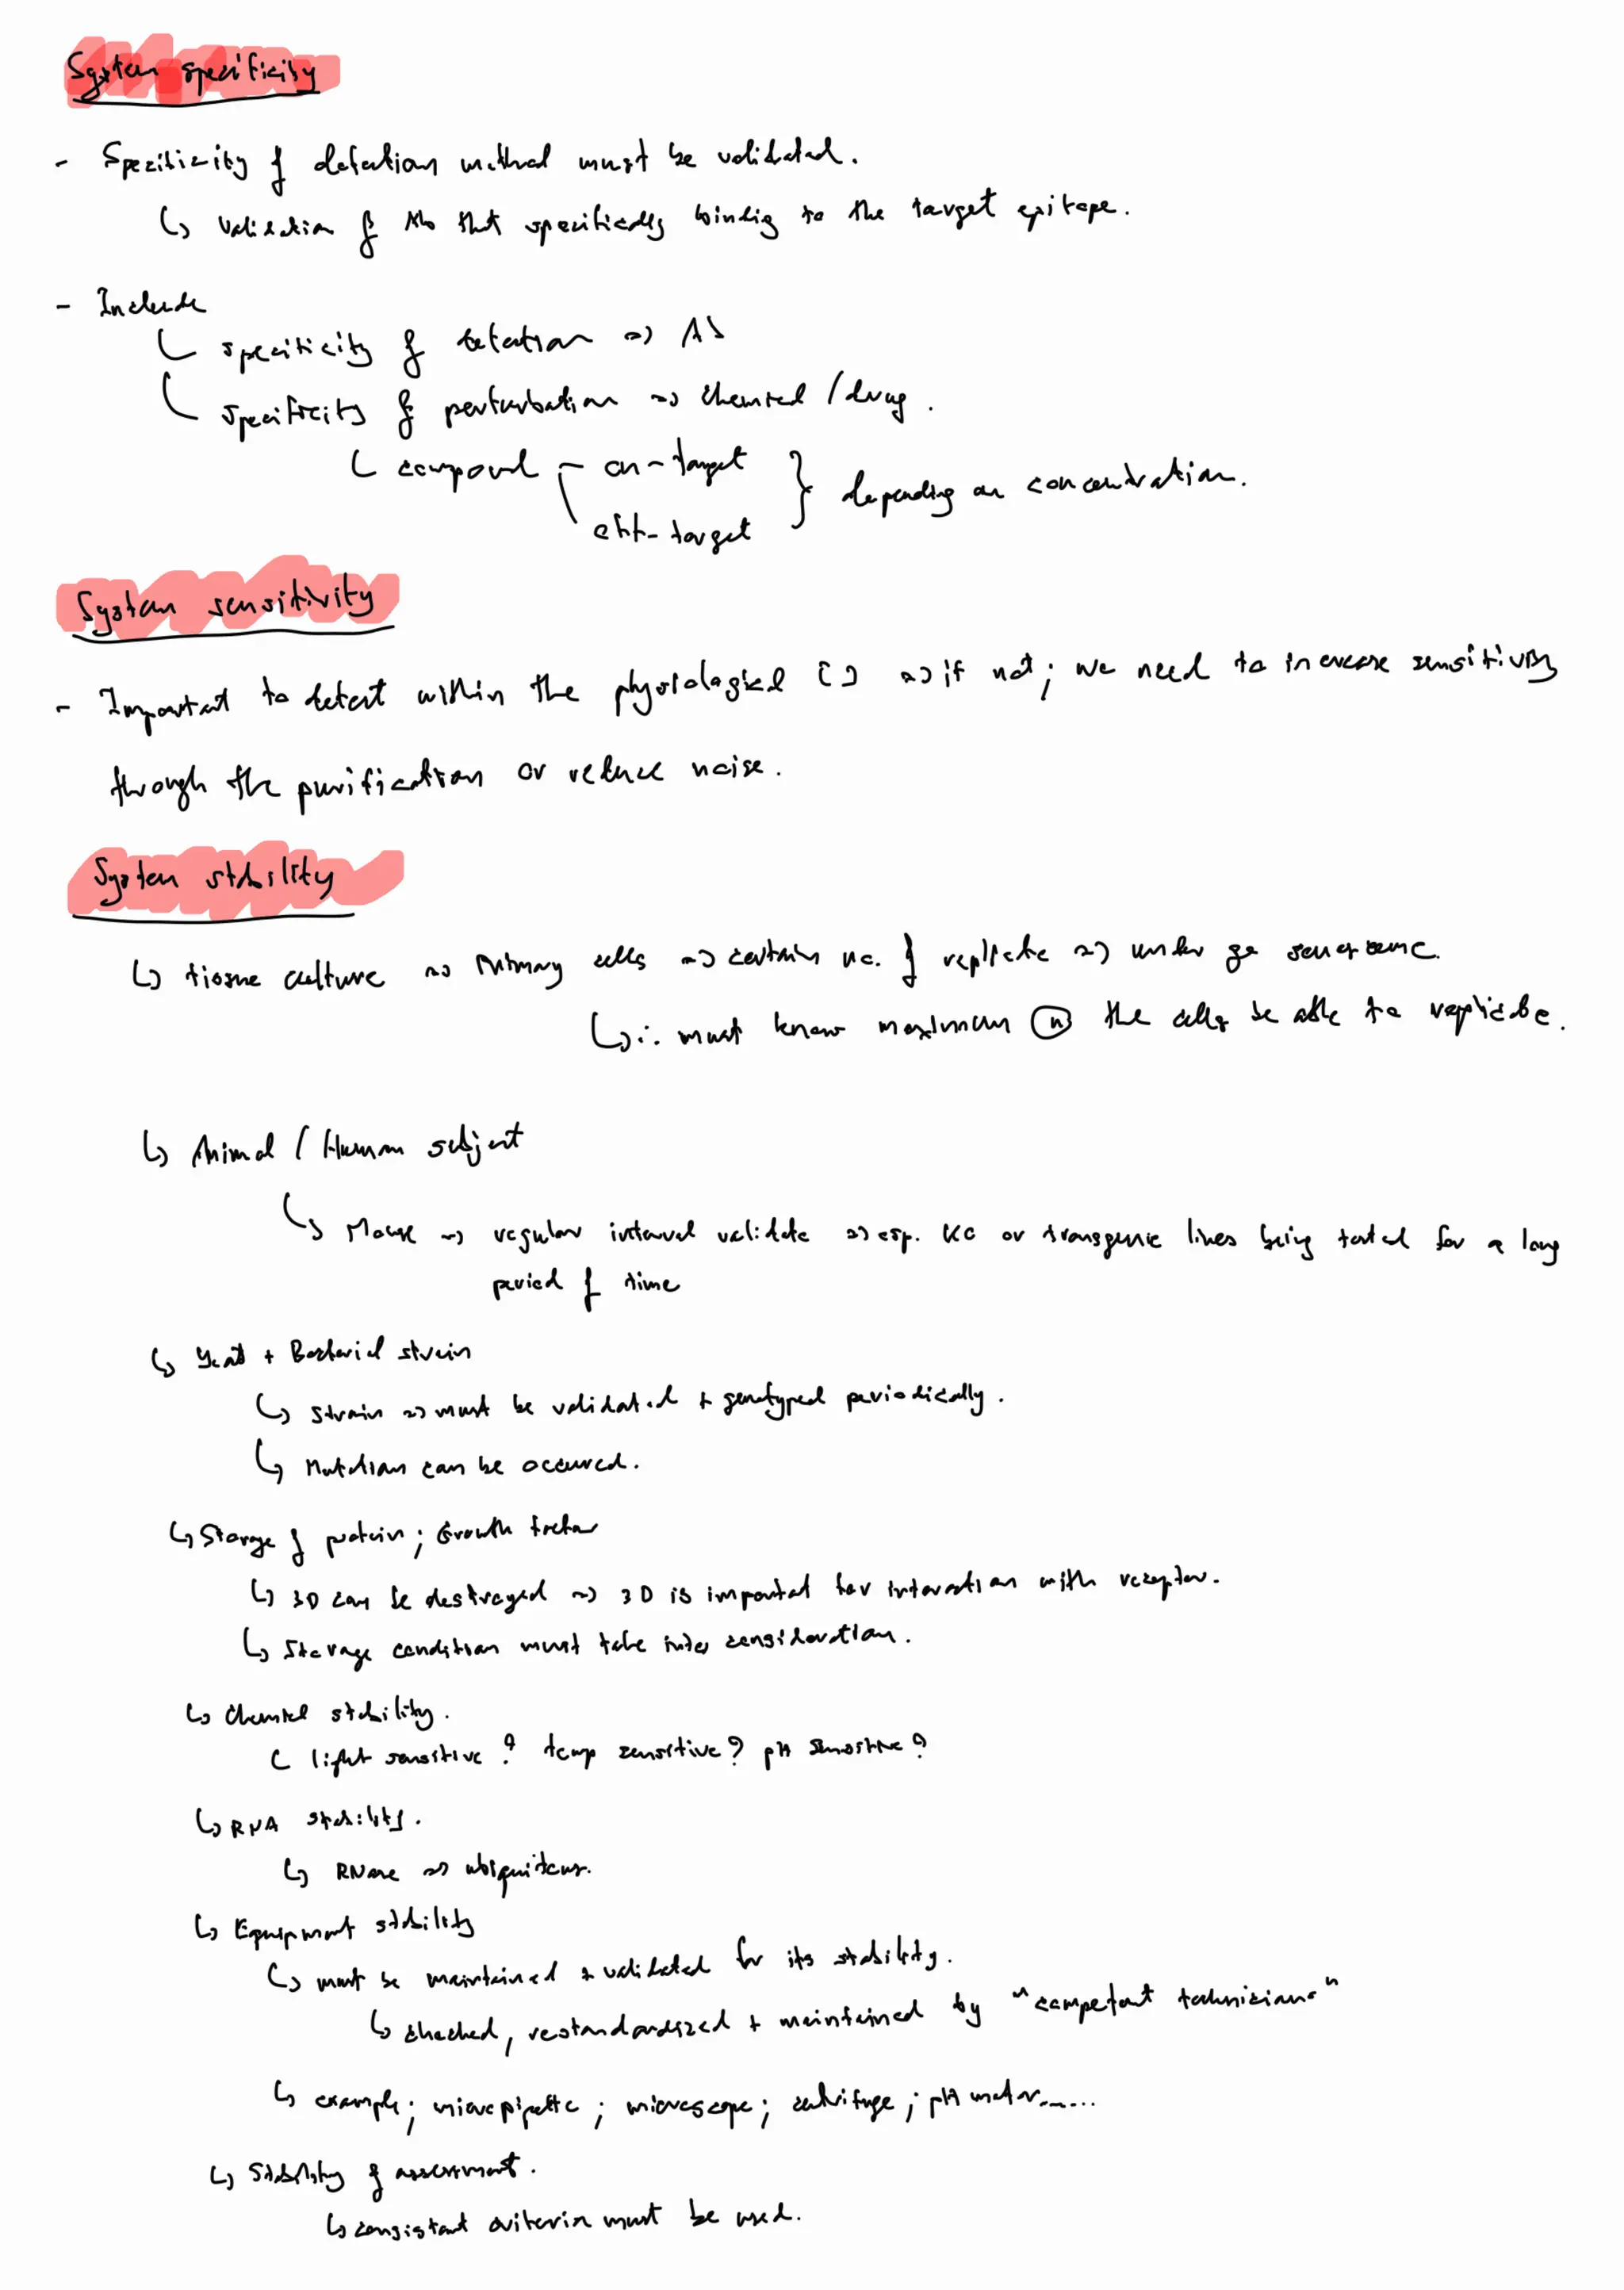 System specificity
- Specificity of detection method must be validated.
↳ Validation of Ab that specifically binding to the target epitope.
- Include
↳ specificity of detection => Ab
↳ specificity of perturbation => chemical / drug.
↳ compound - on-target } depending on concentration.
off-target
System sensitivity
- Important to detect within the physiological [ ] => if not; we need to increase sensitivity
through the purification or reduce noise.
System stability
↳ tissue culture => Primary cells => certain no. of replicate => undergo senescence.
↳ ∴ must know maximum (n) the cells be able to replicate.
↳ Animal / Human subject
↳ Mouse => regular interval validate => esp. KO or transgenic lines being tested for a long
period of time
↳ Yeast + Bacterial strain
↳ strain => must be validated + genotyped periodically.
↳ Mutation can be occured.
↳ Storage of protein; Growth factor
↳ 3D can be destroyed => 3D is important for interaction with receptor.
↳ Storage condition must take into consideration.
↳ Chemical stability.
↳ light sensitive? temp sensitive? pH sensitive?
↳ RNA stability.
↳ RNase => ubiquitous.
↳ Equipment stability
↳ must be maintained + validated for its stability.
↳ checked, restandardized + maintained by "competent technicians"
↳ example; micropipette; microscope; centrifuge; pH meter......
↳ Stability of assessment.
↳ consistant criteria must be used.